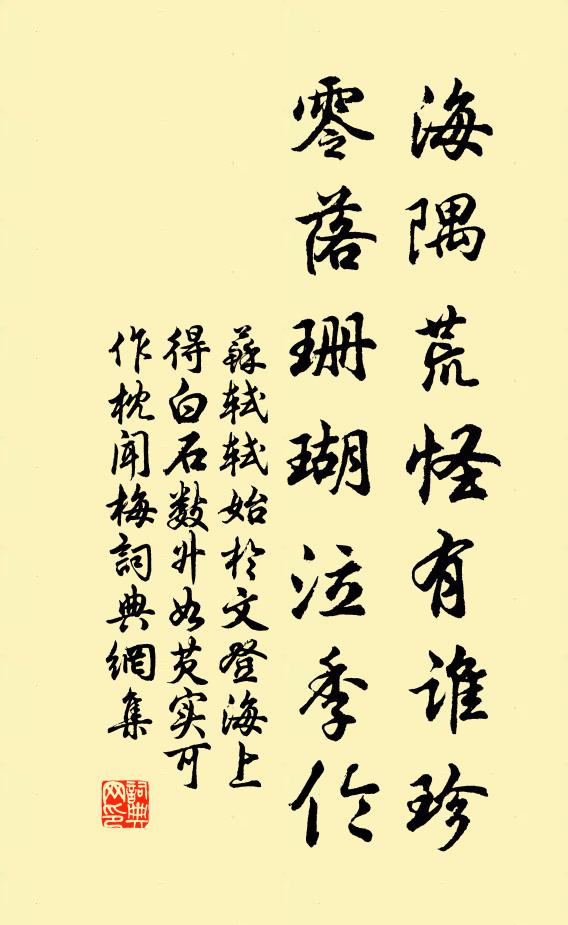 海隅荒怪有谁珍
零落珊瑚泣季伦
蘇轼轼始於文登海上
得白石数升如芡实可
作枕闻梅詞典網集
詞典网印